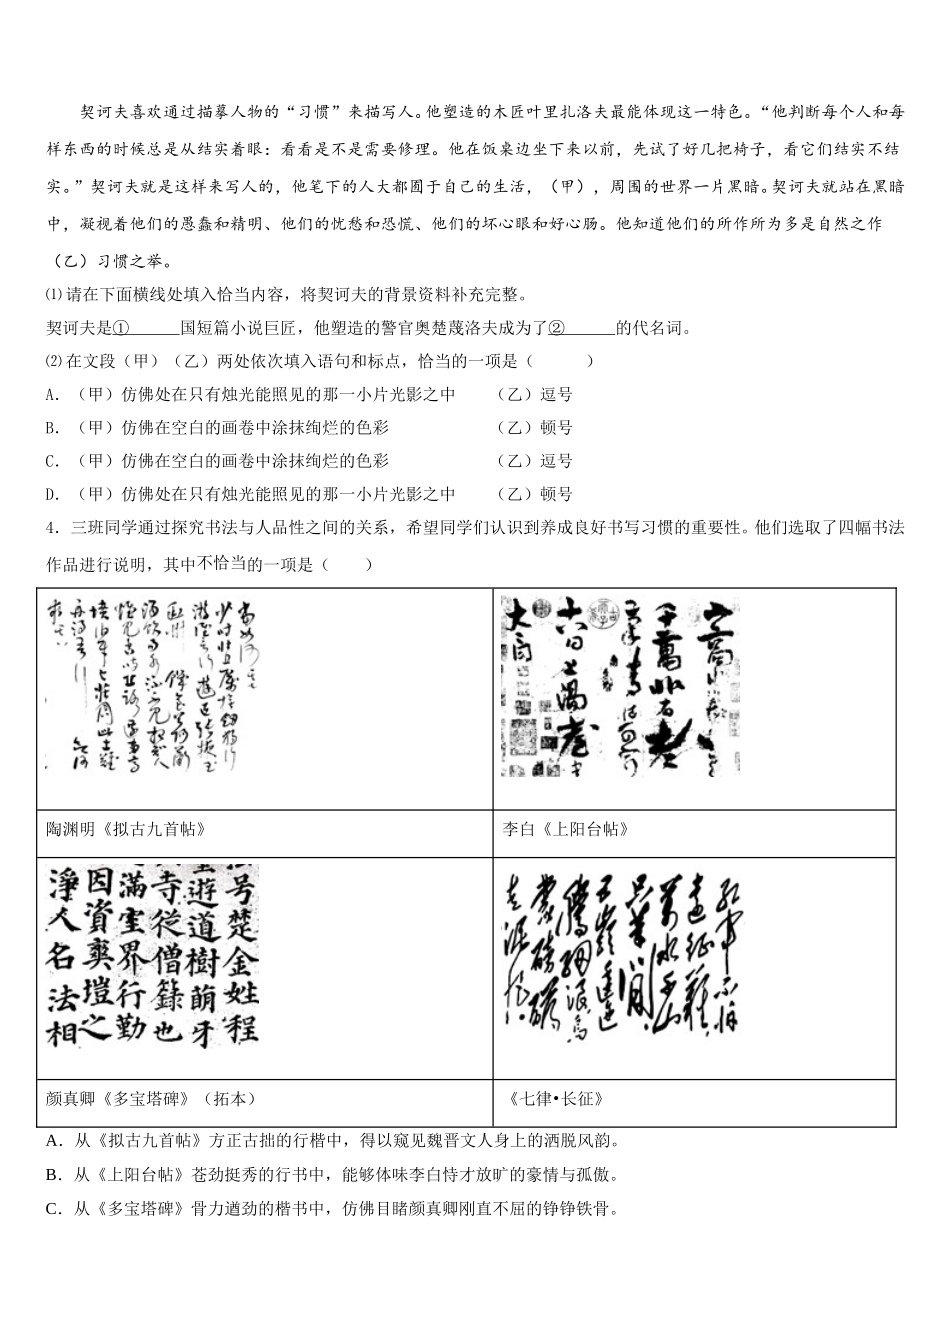 契诃夫喜欢通过描摹人物的“习惯”来描写人。他塑造的木匠叶里扎洛夫最能体现这一特色。“他判断每个人和每
样东西的时候总是从结实着眼：看看是不是需要修理。他在饭桌边坐下来以前，先试了好几把椅子，看它们结实不结
实。”契诃夫就是这样来写人的，他笔下的人大都囿于自己的生活，（甲），周围的世界一片黑暗。契诃夫就站在黑暗
中，凝视着他们的愚蠢和精明、他们的忧愁和恐慌、他们的坏心眼和好心肠。他知道他们的所作所为多是自然之作
（乙）习惯之举。
⑴请在下面横线处填入恰当内容，将契诃夫的背景资料补充完整。
契诃夫是①______国短篇小说巨匠，他塑造的警官奥楚蔑洛夫成为了②______的代名词。
⑵在文段（甲）（乙）两处依次填入语句和标点，恰当的一项是（　　）
A．（甲）仿佛处在只有烛光能照见的那一小片光影之中　　（乙）逗号
B．（甲）仿佛在空白的画卷中涂抹绚烂的色彩　　（乙）顿号
C．（甲）仿佛在空白的画卷中涂抹绚烂的色彩　　（乙）逗号
D．（甲）仿佛处在只有烛光能照见的那一小片光影之中　　（乙）顿号
4．三班同学通过探究书法与人品性之间的关系，希望同学们认识到养成良好书写习惯的重要性。他们选取了四幅书法
作品进行说明，其中不恰当的一项是（　　）
陶渊明《拟古九首帖》
李白《上阳台帖》
号楚金姓程
遊道樹萌牙
寺從僧籙也
滿室界行勤
因資爽塏之
淨人名法相
颜真卿《多宝塔碑》（拓本）
《七律•长征》
A．从《拟古九首帖》方正古拙的行楷中，得以窥见魏晋文人身上的洒脱风韵。
B．从《上阳台帖》苍劲挺秀的行书中，能够体味李白恃才放旷的豪情与孤傲。
C．从《多宝塔碑》骨力遒劲的楷书中，仿佛目睹颜真卿刚直不屈的铮铮铁骨。